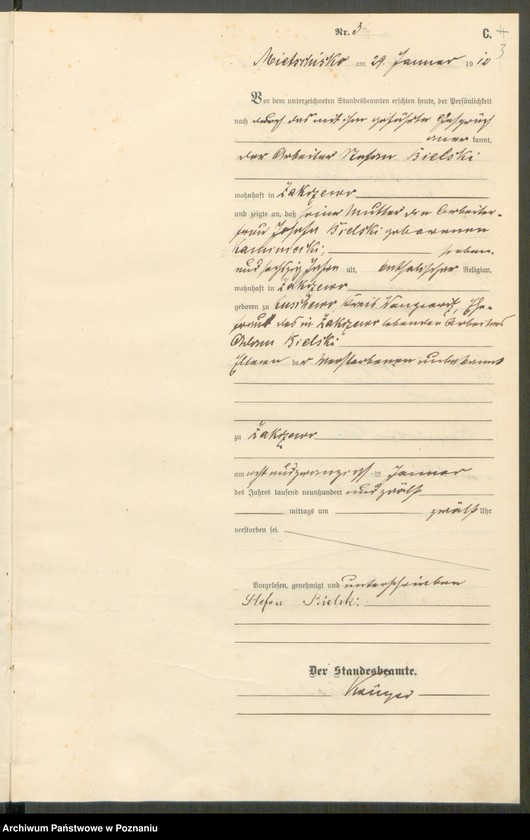 Nr. 3.
C.
+
3
Mieltschisko am 29. Januar 1912
Vor dem unterzeichneten Standesbeamten erschien heute, der Persönlichkeit
nach durch das mit ihm geführte Gespräch
aner kannt,
der Arbeiter Stefan Bielski
wohnhaft in Zakrzewo
und zeigte an, daß seine Mutter die Arbeiter-
frau Josefa Bielski geborenen
sieben-
undsechzig Jahre alt, katholischer Religion,
wohnhaft in Zakrzewo
geboren zu Kreis Wongrowitz, Ehe-
frau des in Zakrzewo lebenden Arbeiters
Adam Bielski
Eltern der Verstorbenen unbekannt
zu Zakrzewo
am achtundzwanzigsten Januar
des Jahres tausend neunhundert undzwölf
mittags um zwölf Uhr
verstorben sei.
Vorgelesen, genehmigt und unterschrieben
Stefan Bielski
Der Standesbeamte.
Krüger
Archiwum Państwowe w Poznaniu